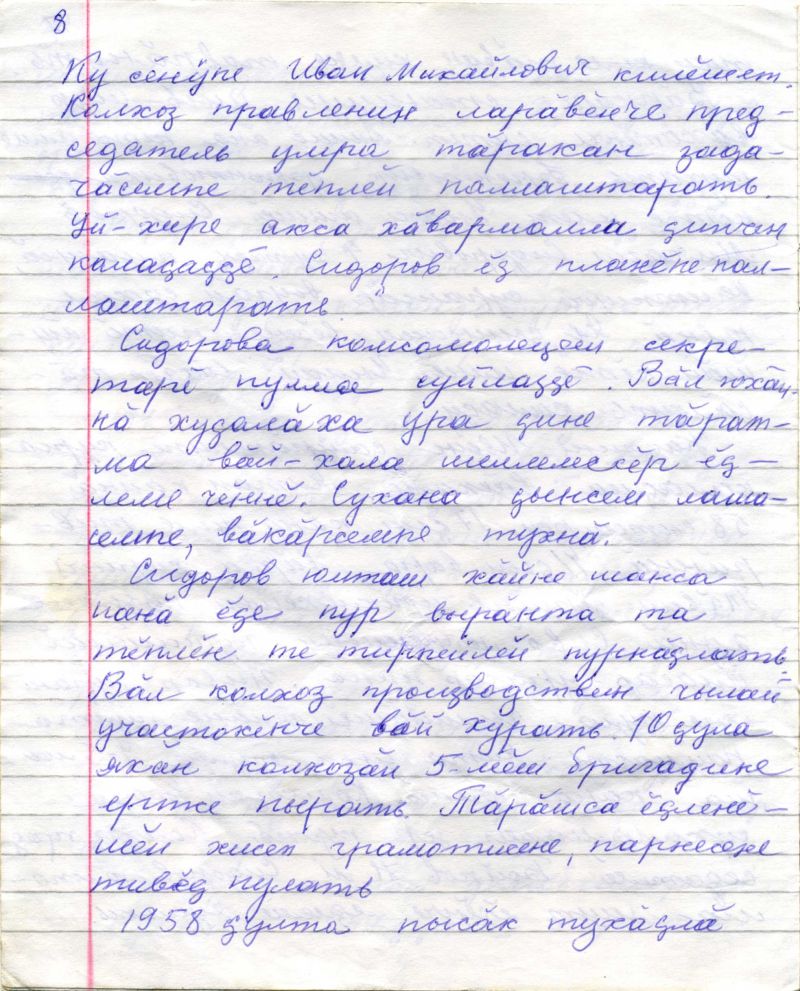 8
Ку сӗнӳпе Иван Михайлович килӗшет.
Колхоз правленин ларӑвӗнче пред-
седатель умра тӑракан зада-
чӑсемпе тӗплӗн паллаштарать.
Уй-хире акса хӑвармалли ҫинчен
калаҫаҫҫӗ. Сидоров ӗҫ планӗпе пал-
лаштарать.
Сидорова комсомолецсен секре-
тарӗ пулма суйлаҫҫӗ. Вӑл юхӑн-
нӑ хуҫалӑха ура ҫине тӑрат-
ма вӑй-хала шеллемесӗр ӗҫ-
леме чӗннӗ. Сухана ҫынсем лаша-
семпе, вӑкӑрсемпе тухнӑ.
Сидоров юлташ хӑйне шанса
панӑ ӗҫе пур вырӑнта та
тӗплӗн те тирпейлӗн пурнӑҫлать.
Вӑл колхоз производствин чылай
участокӗнче вӑй хурать. 10 ҫула
яхӑн колхозӑн 5-мӗш бригадине
ертсе пырать. Тӑрӑшса ӗҫленӗ-
шӗн хисеп грамотисене, парнесене
тивӗҫ пулать
1958 ҫулта пысӑк тухӑҫлӑ